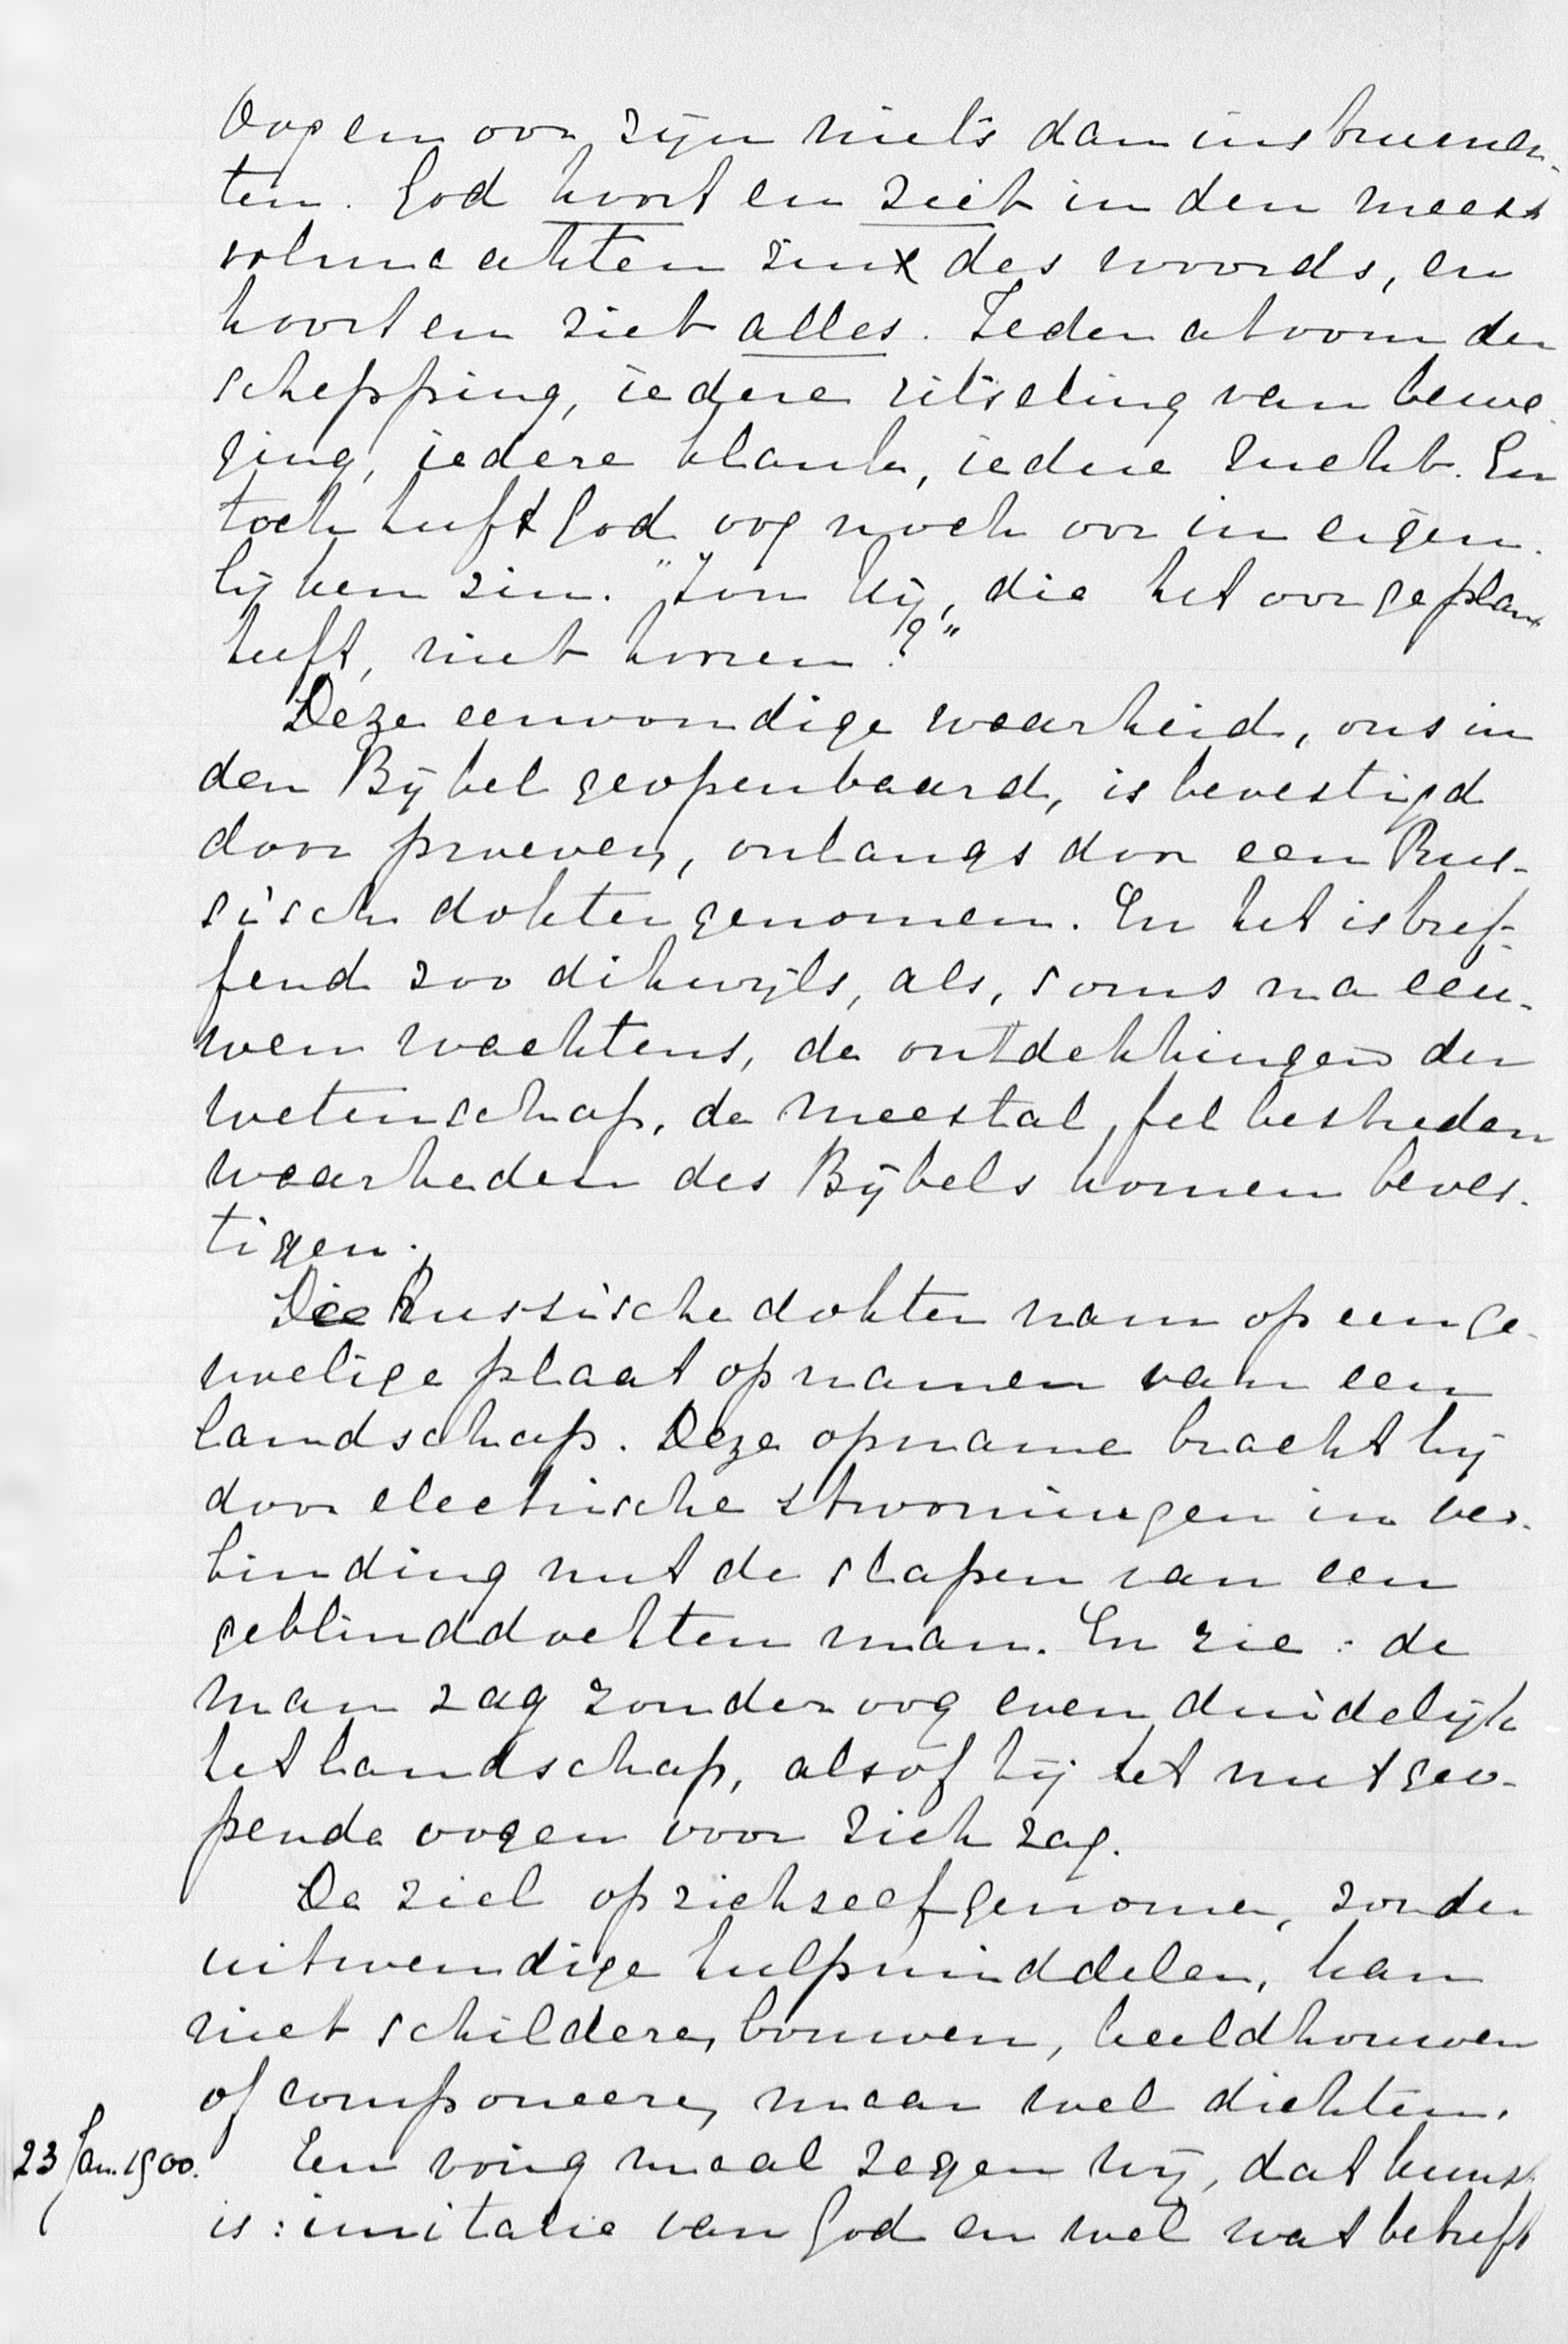 Oog en oor zijn niets dan instrumen-
ten. God hoort en ziet in den meest
volmaakten zin des woords, en
hoort en ziet alles. Ieder atoom der
schepping, iedere ritseling van bewe-
ging, iedere klank, iedere zucht. En
toch heeft God oog noch oor in eigen-
lijken zin. "Zou Hij, die het oor geplant
heeft, niet horen?"
Deze eenvoudige waarheid, ons in
den Bijbel geopenbaard, is bevestigd
door proeven, onlangs door een Rus-
sisch dokter genomen. En het is tref-
fend zoo dikwijls, als, soms na eeu-
wen wachtens, de ontdekkingen der
wetenschap, de meestal fel bestreden
waarheden des Bijbels komen beves-
tigen.
Die Russische dokter nam op een ge-
voelige plaat opnamen van een
landschap. Deze opname bracht hij
door electrische stroomingen in ver-
binding met de slapen van een
geblinddoekten man. En zie: de
man zag zonder oog even duidelijk
het landschap, alsof hij het met geo-
pende oogen voor zich zag.
De ziel op zichzelf genomen, zonder
uitwendige hulpmiddelen, kan
niet schilderen, bouwen, beeldhouwen
of componeeren, maar wel dichten.
23 Jan. 1900. Een vorig maal zagen wij, dat kunst
is: imitatie van God en wel wat betreft